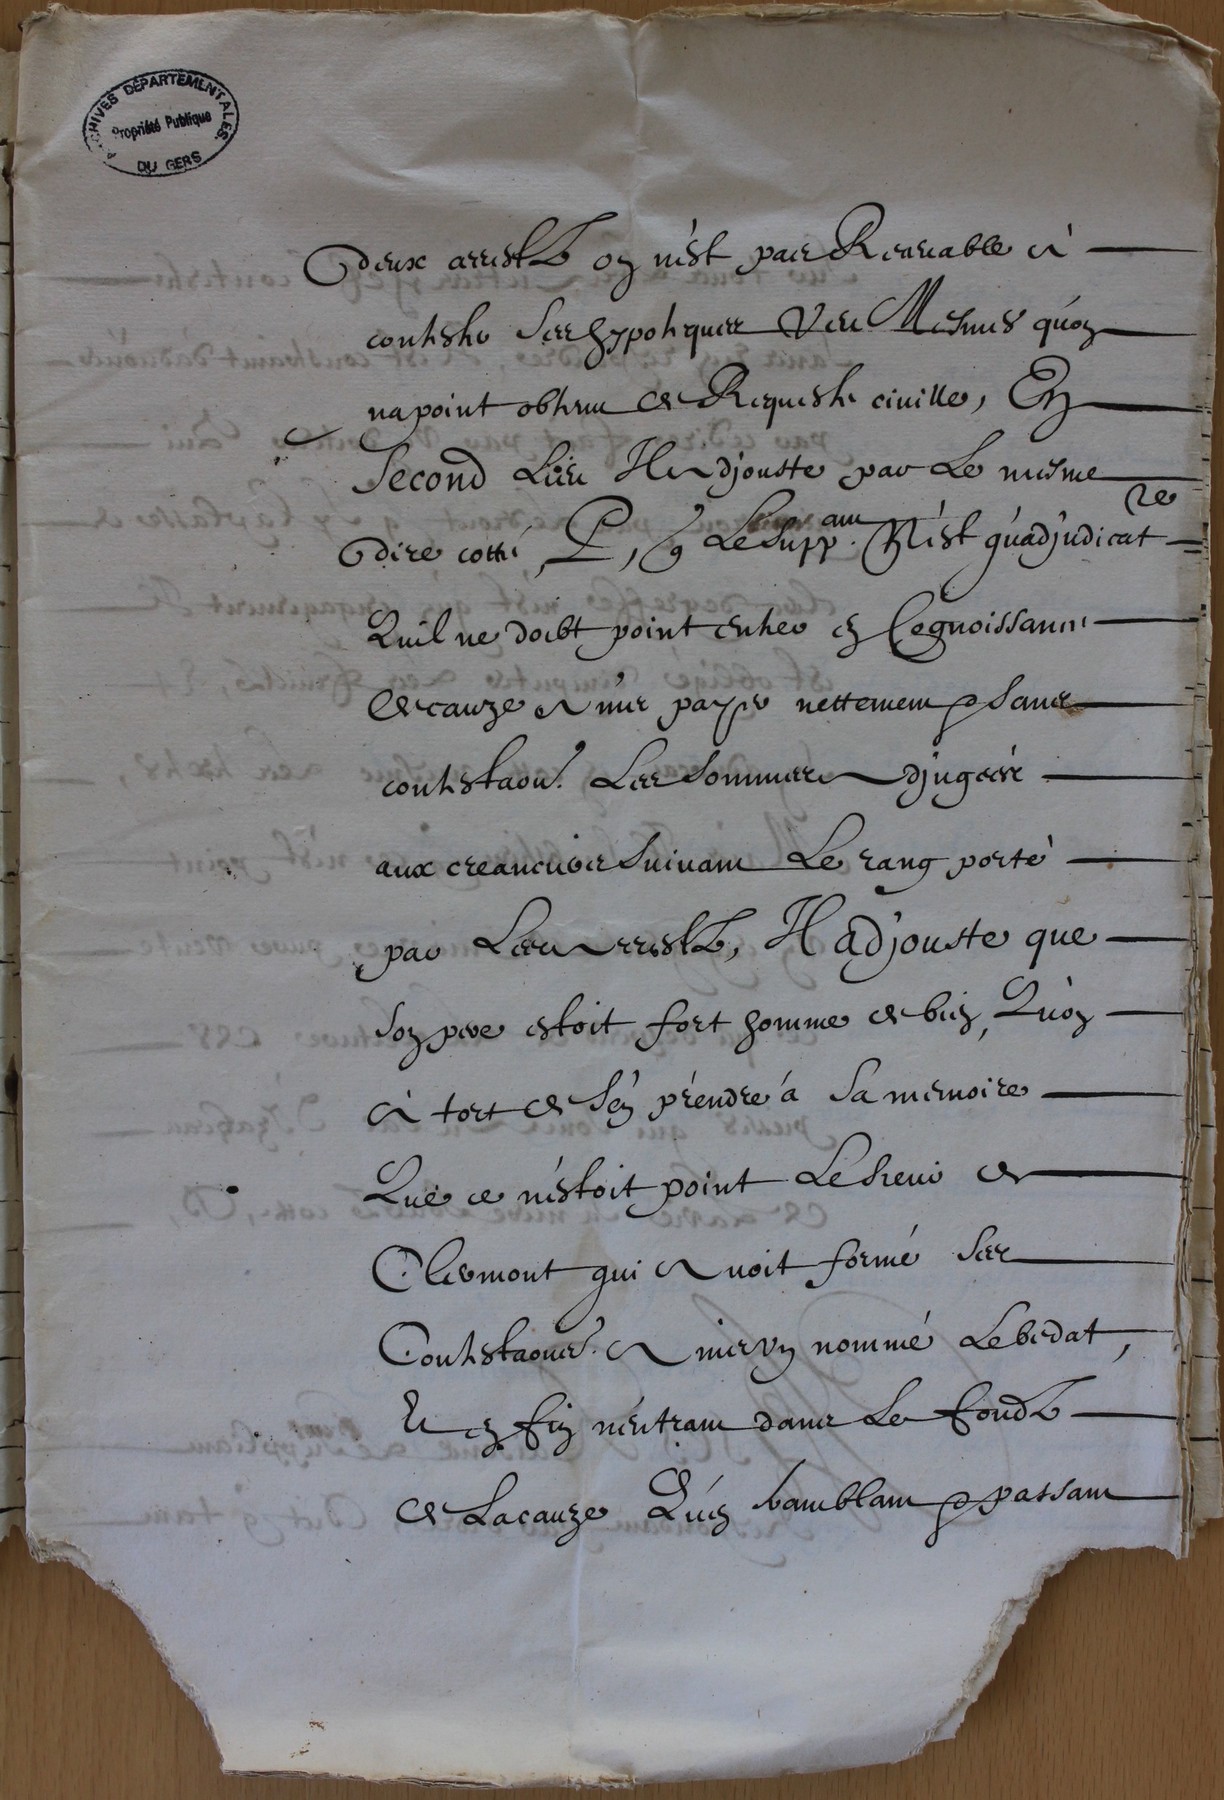 ARCHIVES DÉPARTEMENTALES
Propriété Publique
DU GERS
deux arrestz on n'est pas Recevable a
conteste ses hypoteques veu Mesmes qu'on
na point obtenu de Requeste civille, En
second Lieu Il adjouste par Le mesme
dire cotté, P, q Le supp.ant N'est qu'adjudicat re
Quil ne doibt point entrer en Cognoissance
de cauze ains payer nettement et sans
contesta͠on. Les sommes adjugées
aux creanciers suivant Le rang porté
par Les arrestz, Il adjouste que
son pere estoit fort homme de bien, Qu'on
a tort de s'en prendre a sa memoire
Que ce n'estoit point Le sieur de
Clermont qui avoit formé ses
Contesta͠ons. ains un nommé Lebedat,
Et en fin n'entrant dans Le fondz
de La cauze Qu'en tremblant et passant